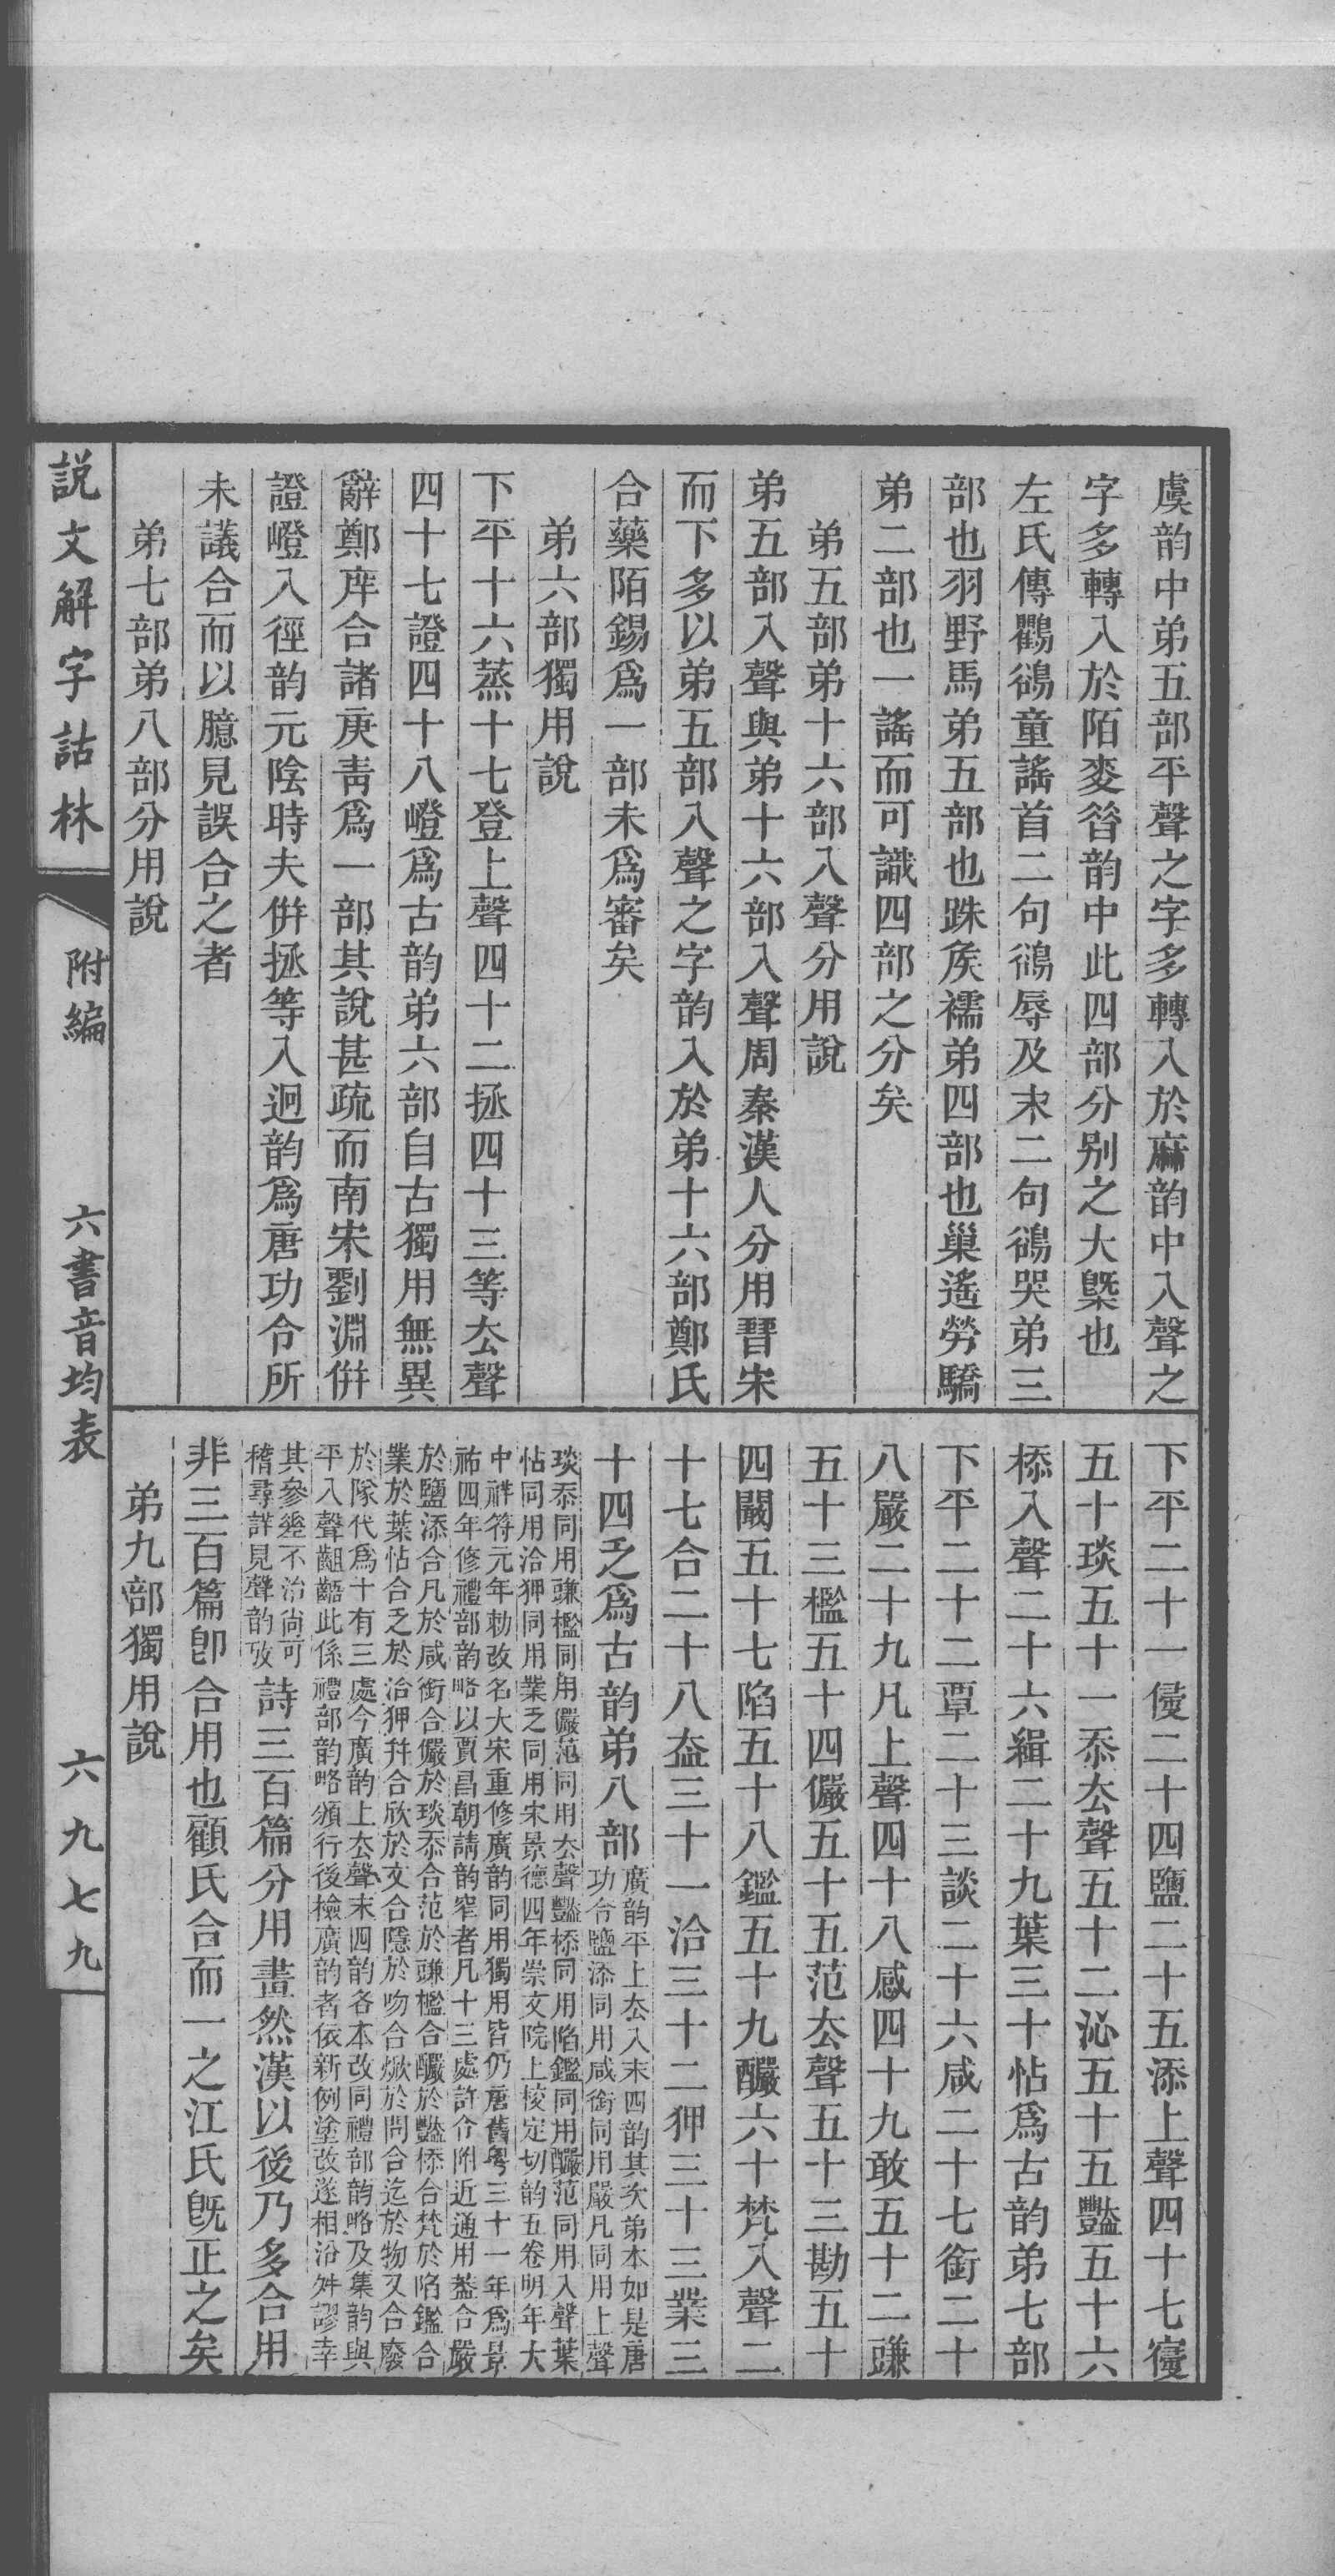 虞韵中弟五部平聲之字多轉入於麻韵中入聲之
字多轉入於陌麥㫺韵中此四部分别之大槩也
左氏傳鸜鵒童謠首二句鵒辱及末二句鵒哭弟三
部也羽野馬弟五部也跦矦襦弟四部也巢遙勞驕
弟二部也一謠而可識四部之分矣
弟五部弟十六部入聲分用說
弟五部入聲與弟十六部入聲周秦漢人分用晉宋
而下多以弟五部入聲之字韵入於弟十六部鄭氏
合藥陌錫爲一部未爲審矣
弟六部獨用說
下平十六蒸十七登上聲四十二拯四十三等厺聲
四十七證四十八嶝爲古韵弟六部自古獨用無異
辭鄭庠合諸庚靑爲一部其說甚疏而南宋劉淵倂
證嶝入徑韵元陰時夫倂拯等入迥韵爲唐功令所
未議合而以臆見誤合之者
弟七部弟八部分用說
下平二十一侵二十四鹽二十五添上聲四十七寑
五十琰五十一忝厺聲五十二沁五十五豔五十六
㮇入聲二十六緝二十九葉三十怗爲古韵弟七部
下平二十二覃二十三談二十六咸二十七銜二十
八嚴二十九凡上聲四十八感四十九敢五十二豏
五十三檻五十四儼五十五范厺聲五十三勘五十
四闞五十七陷五十八鑑五十九釅六十梵入聲二
十七合二十八盍三十一洽三十二狎三十三業三
十四乏爲古韵弟八部
廣韵平上厺入末四韵其次弟本如是唐
功令鹽添同用咸銜同用嚴凡同用上聲
琰忝同用豏檻同用儼范同用厺聲豔㮇同用陷鑑同用釅范同用入聲葉
怗同用洽狎同用業乏同用宋景德四年崇文院上校定切韵五卷明年大
中祥符元年勅改名大宋重修廣韵同用獨用皆仍唐舊粤三十一年爲景
祐四年修禮部韵略以賈昌朝請韵窄者凡十三處許令附近通用葢合嚴
於鹽添合凡於咸銜合儼於琰忝合范於豏檻合釅於豔㮇合梵於陷鑑合
業於葉怗合乏於洽狎幷合欣於文合隱於吻合焮於問合迄於物又合廢
於隊代爲十有三處今廣韵上厺聲末四韵各本改同禮部韵略及集韵與
平入聲齟齬此係禮部韵略頒行後檢廣韵者依新例塗改遂相沿舛謬幸
其參差不治尚可
稽尋詳見聲韵攷
詩三百篇分用畫然漢以後乃多合用
非三百篇卽合用也顧氏合而一之江氏旣正之矣
弟九部獨用說
説文解字詁林
附編
六書音均表
六九七九